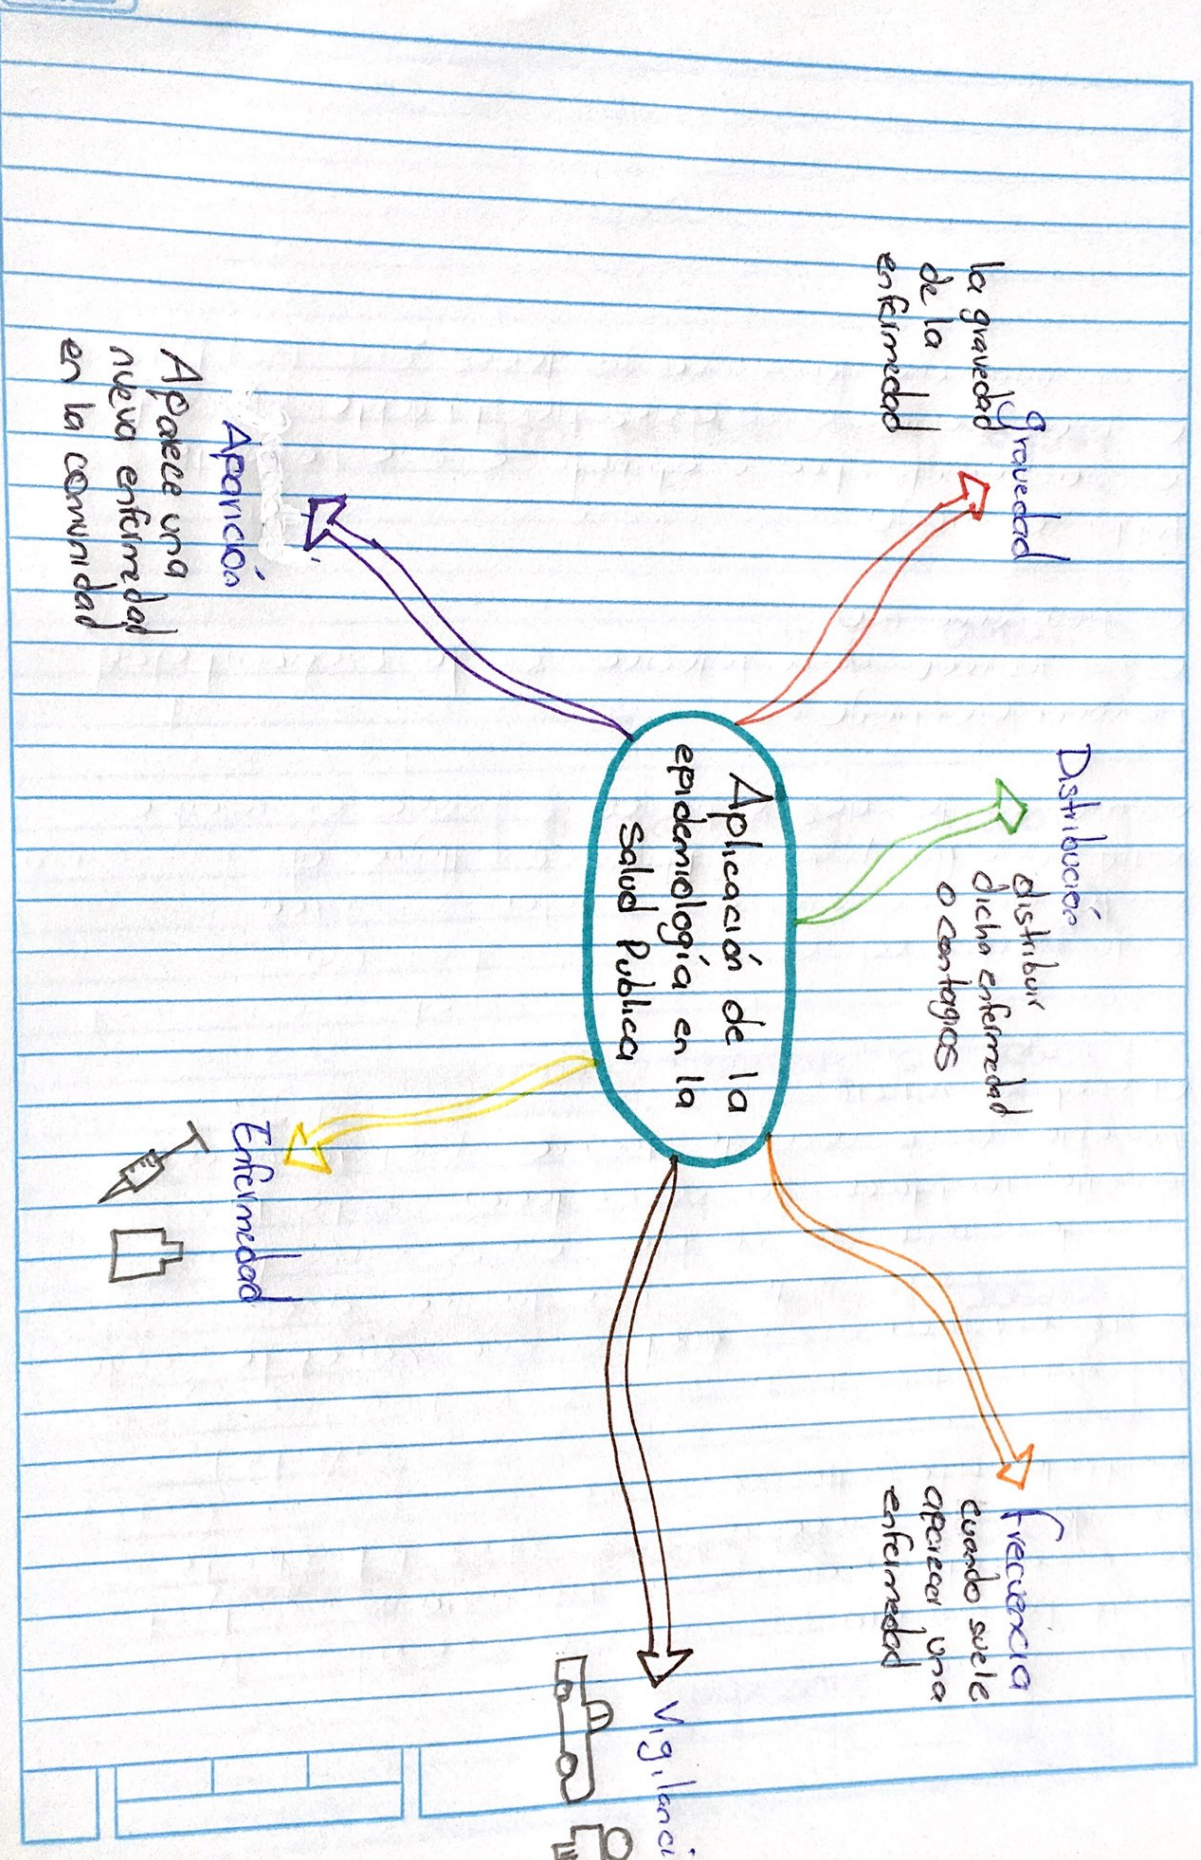 Aplicación de la
epidemiología en la
salud Publica
gravedad
la gravedad
de la
enfermedad
Distribución
distribuir
dicha enfermedad
o contagios
frecuencia
cuando suele
aparecer una
enfermedad
Vigilanci
Enfermedad
Aparición
Aparece una
nueva enfermedad
en la comunidad